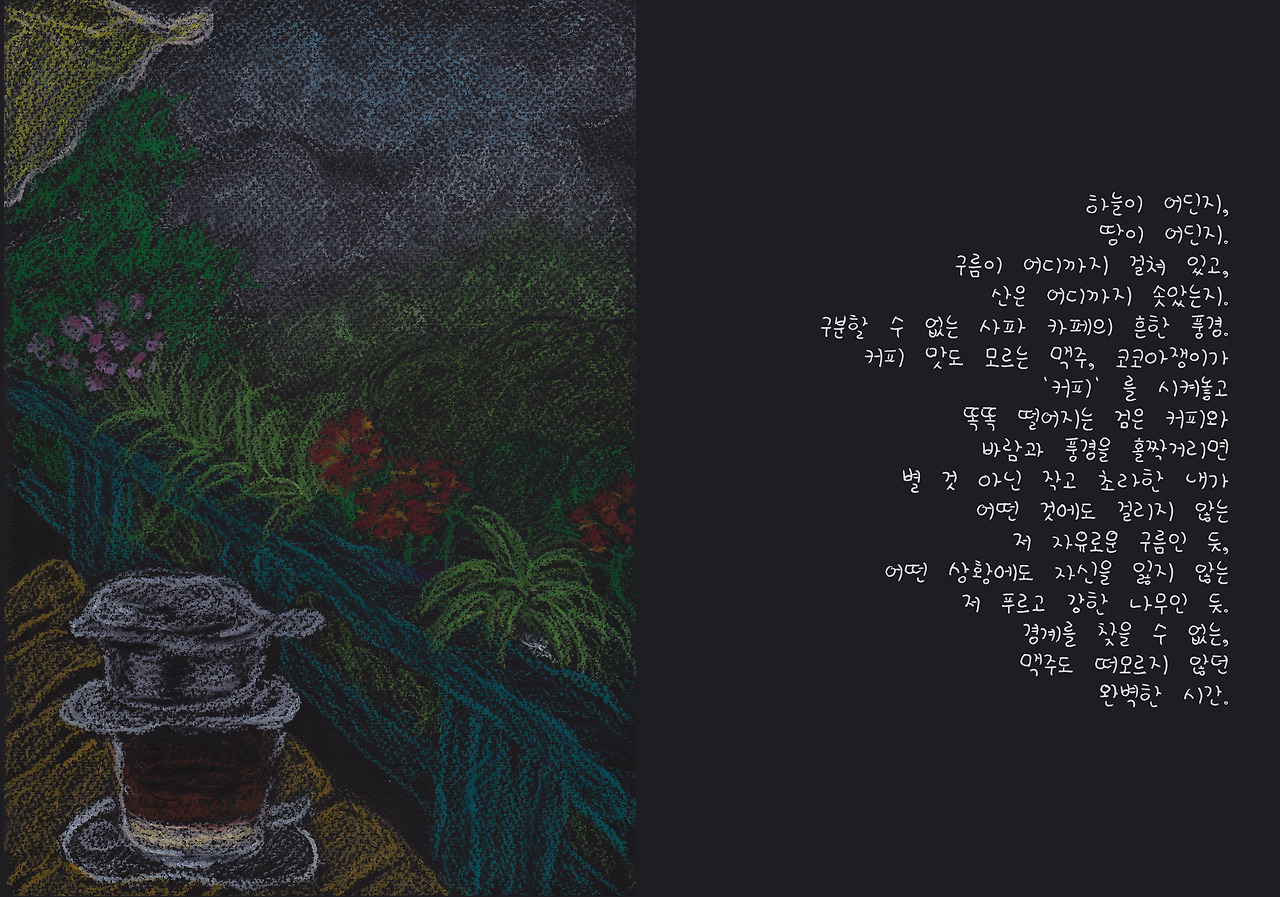 하늘이 어딘지,
땅이 어딘지.
구름이 어디까지 걸쳐 있고,
산은 어디까지 솟았는지.
구분할 수 없는 사파 카페의 흔한 풍경.
커피 맛도 모르는 맥주, 코코아쟁이가
'커피' 를 시켜놓고
똑똑 떨어지는 검은 커피와
바람과 풍경을 홀짝거리면
별 것 아닌 작고 초라한 내가
어떤 것에도 걸리지 않는
저 자유로운 구름인 듯,
어떤 상황에도 자신을 잃지 않는
저 푸르고 강한 나무인 듯.
경계를 찾을 수 없는,
맥주도 떠오르지 않던
완벽한 시간.